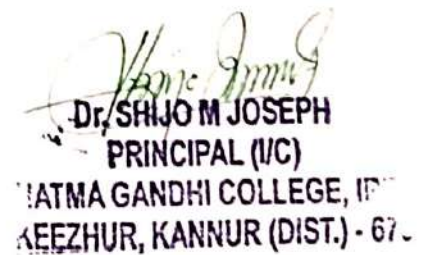 Dr. SHIJO M JOSEPH
PRINCIPAL (I/C)
HATMA GANDHI COLLEGE,
KEEZHUR, KANNUR (DIST.) - 67